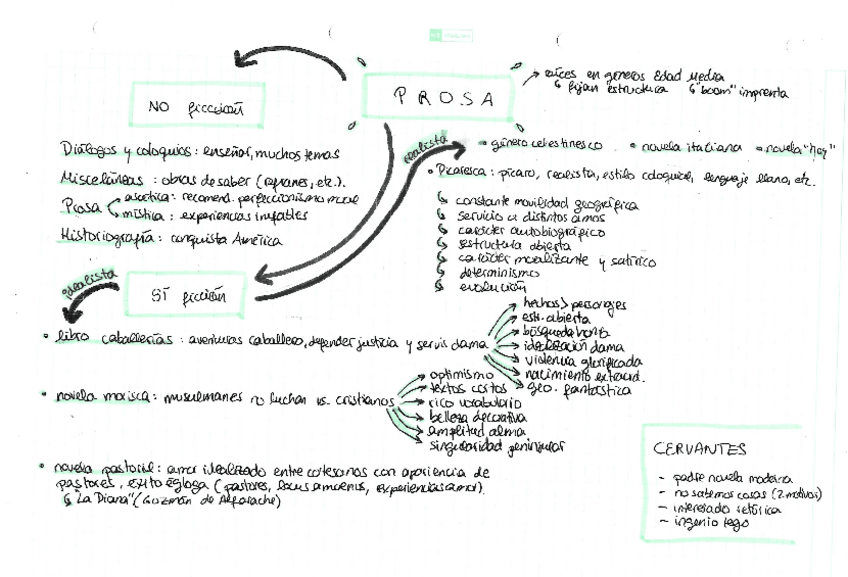 PROSA
raíces en géneros Edad Media
fijan estructura "boom" imprenta
NO ficción
Diálogos y coloquios: enseñar, muchos temas
Misceláneas: obras de saber (refranes, etc.).
Prosa
ascética: recomend. perfeccionismo moral
mística: experiencias inefables
Historiografía: conquista América
realista
• género celestinesco • novela italiana
• Picaresca: pícaro, realista, estilo coloquial, lenguaje llano, etc.
constante movilidad geográfica
servicio a distintos amos
carácter autobiográfico
estructura abierta
carácter moralizante y satírico
determinismo
evolución
SÍ ficción
idealista
• libro caballerías: aventuras caballero, defender justicia y servir dama
hechos > personajes
estr. abierta
búsqueda honra
idealización dama
violencia glorificada
nacimiento extraord.
geo. fantástica
• novela morisca: musulmanes no luchan vs. cristianos
optimismo
textos cortos
rico vocabulario
belleza decorativa
amplitud alma
singularidad peninsular
• novela pastoril: amor idealizado entre cortesanos con apariencia de
pastores, éxito égloga (pastores, locus amoenus, experiencias amor).
"La Diana" (Guzmán de Alfarache)
CERVANTES
- padre novela moderna
- no sabemos cosas (2 motivos)
- interesado retórica
- ingenio lego